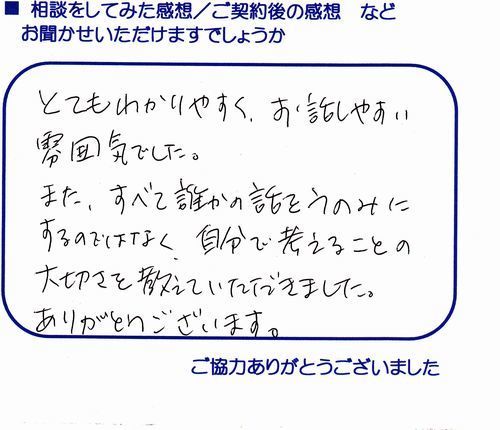 ■ 相談をしてみた感想／ご契約後の感想　など
お聞かせいただけますでしょうか
とてもわかりやすく、お話しやすい
雰囲気でした。
また、すべて誰かの話をうのみに
するのではなく、自分で考えることの
大切さを教えていただきました。
ありがとうございます。
ご協力ありがとうございました